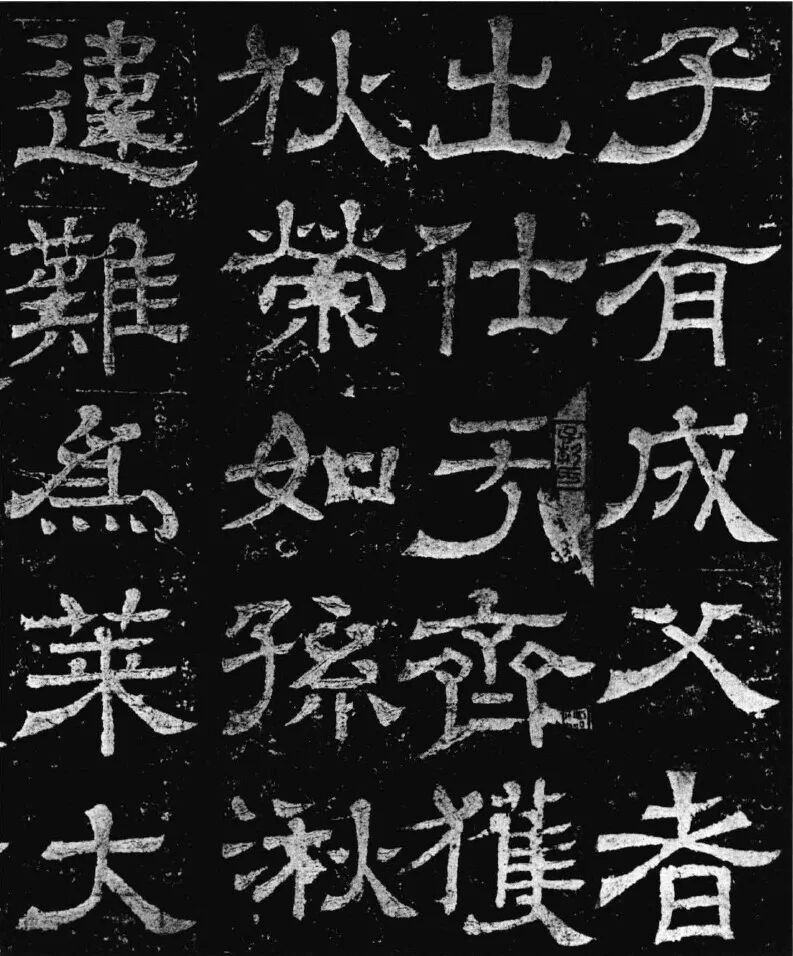 子有成父者
出仕于齊獲
狄榮如孫湫
違難為萊大